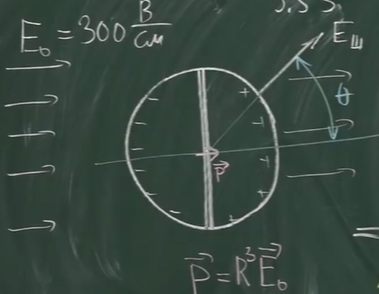 E₀ = 300 В/см
E_Ш
θ
p⃗
p⃗ = R³E⃗₀